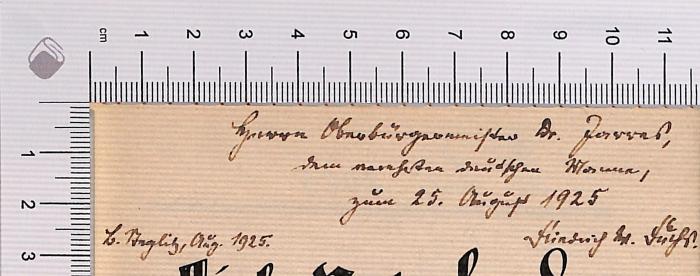 cm 1 2 3 4 5 6 7 8 9 10 11
Herrn Oberbürgermeister Dr. Jarres,
1
dem verehrten deutschen Manne,
2
zum 25. August 1925
B. Steglitz, Aug. 1925. Friedrich W. Fuchs.
3